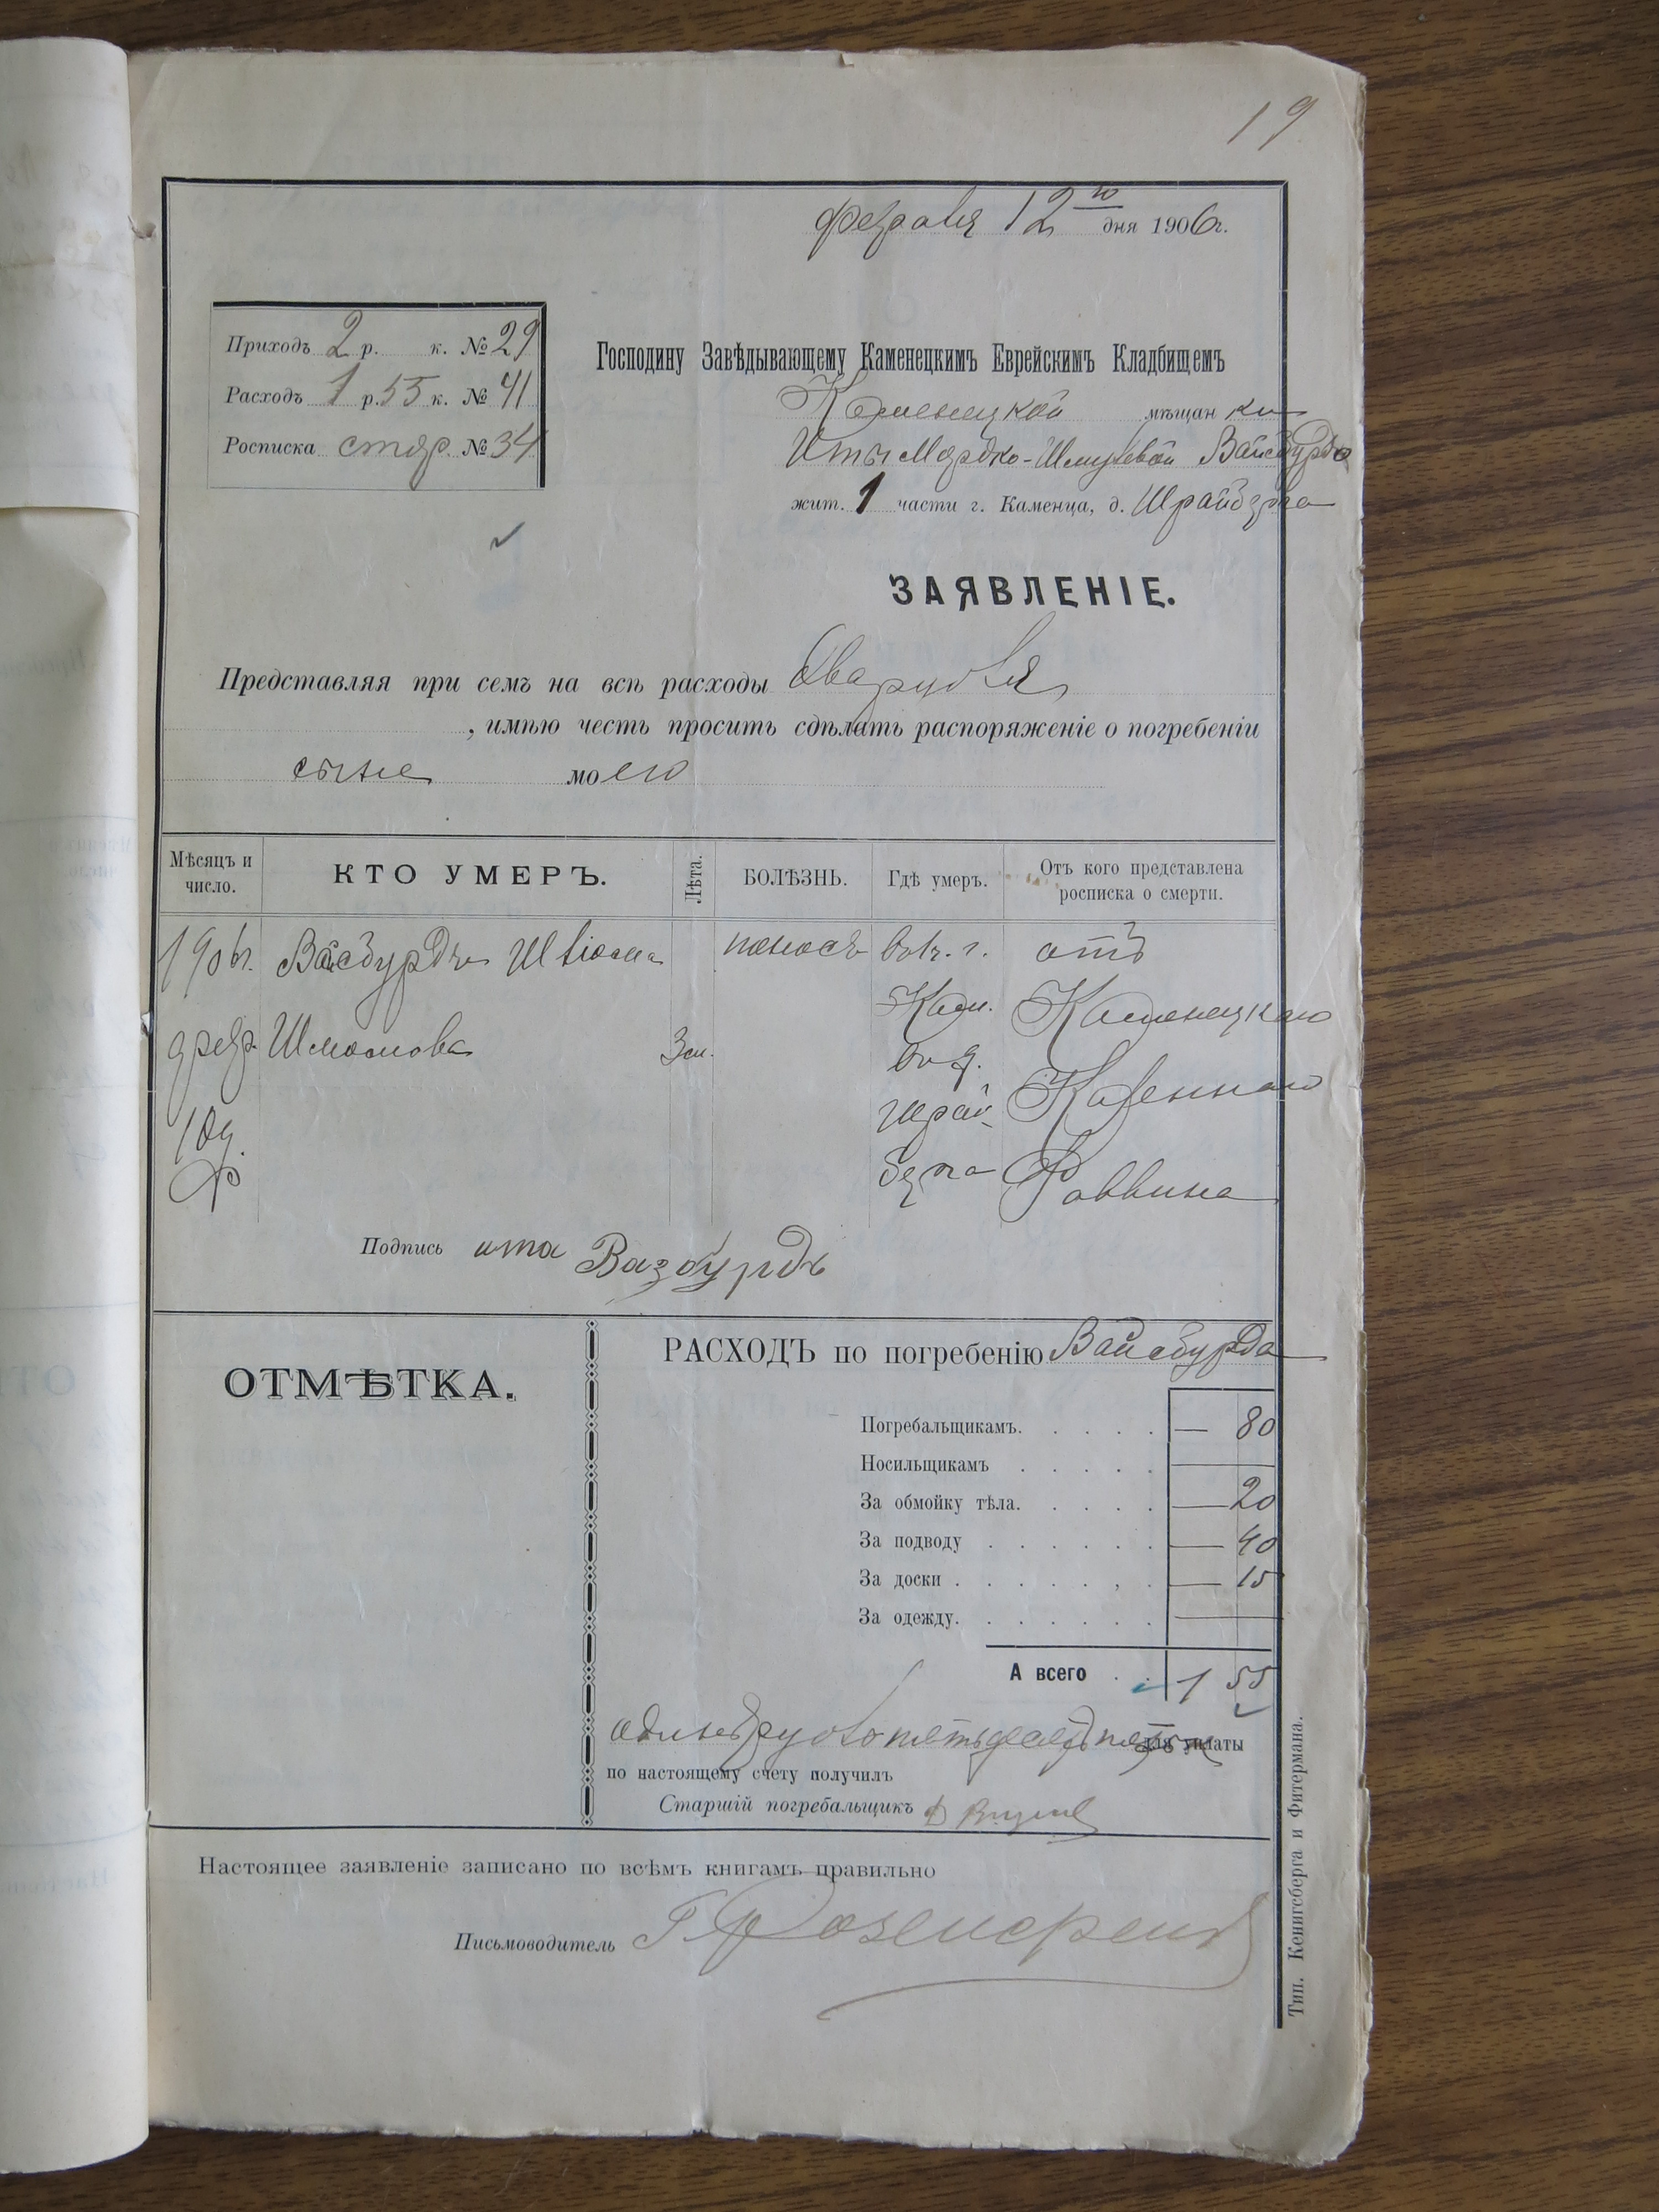 19
февраля 12го дня 1906г.
Приходъ 2 р. к. № 29
Расходъ 1 р. 55 к. № 41
Росписка стар. № 34
Господину Завѣдывающему Каменецкимъ Еврейскимъ Кладбищемъ
Каменецкой мѣщанки
Иты Мордко-Шмулевой Вайсбурдъ
жит. 1 части г. Каменца, д. Шрайбера
ЗАЯВЛЕНІЕ.
Представляя при семъ на всѣ расходы два рубля
, имѣю честь просить сдѣлать распоряженіе о погребеніи
сына моего
Мѣсяцъ и число.
КТО УМЕРЪ.
Лѣта.
БОЛѢЗНЬ.
Гдѣ умеръ.
Отъ кого представлена росписка о смерти.
1906г. Вайсбурдъ поносъ въ г. отъ
Кам. Каменецкаго
февр. Шмомова 3м. въ д.
Шрай- Казеннаго
10д.
бера Раввина
Подпись ита Вазбурдъ
ОТМѢТКА.
РАСХОДЪ по погребенію Вайсбурда
Погребальщикамъ. — 80
Носильщикамъ —
За обмойку тѣла. — 20
За подводу — 40
За доски — 15
За одежду. —
А всего 1 55
одинъ рубль пятьдесятъ пять к для уплаты
по настоящему счету получилъ
Старшій погребальщикъ
Настоящее заявленіе записано по всѣмъ книгамъ правильно
Письмоводитель
Тип. Кенигсберга и Фитермана.